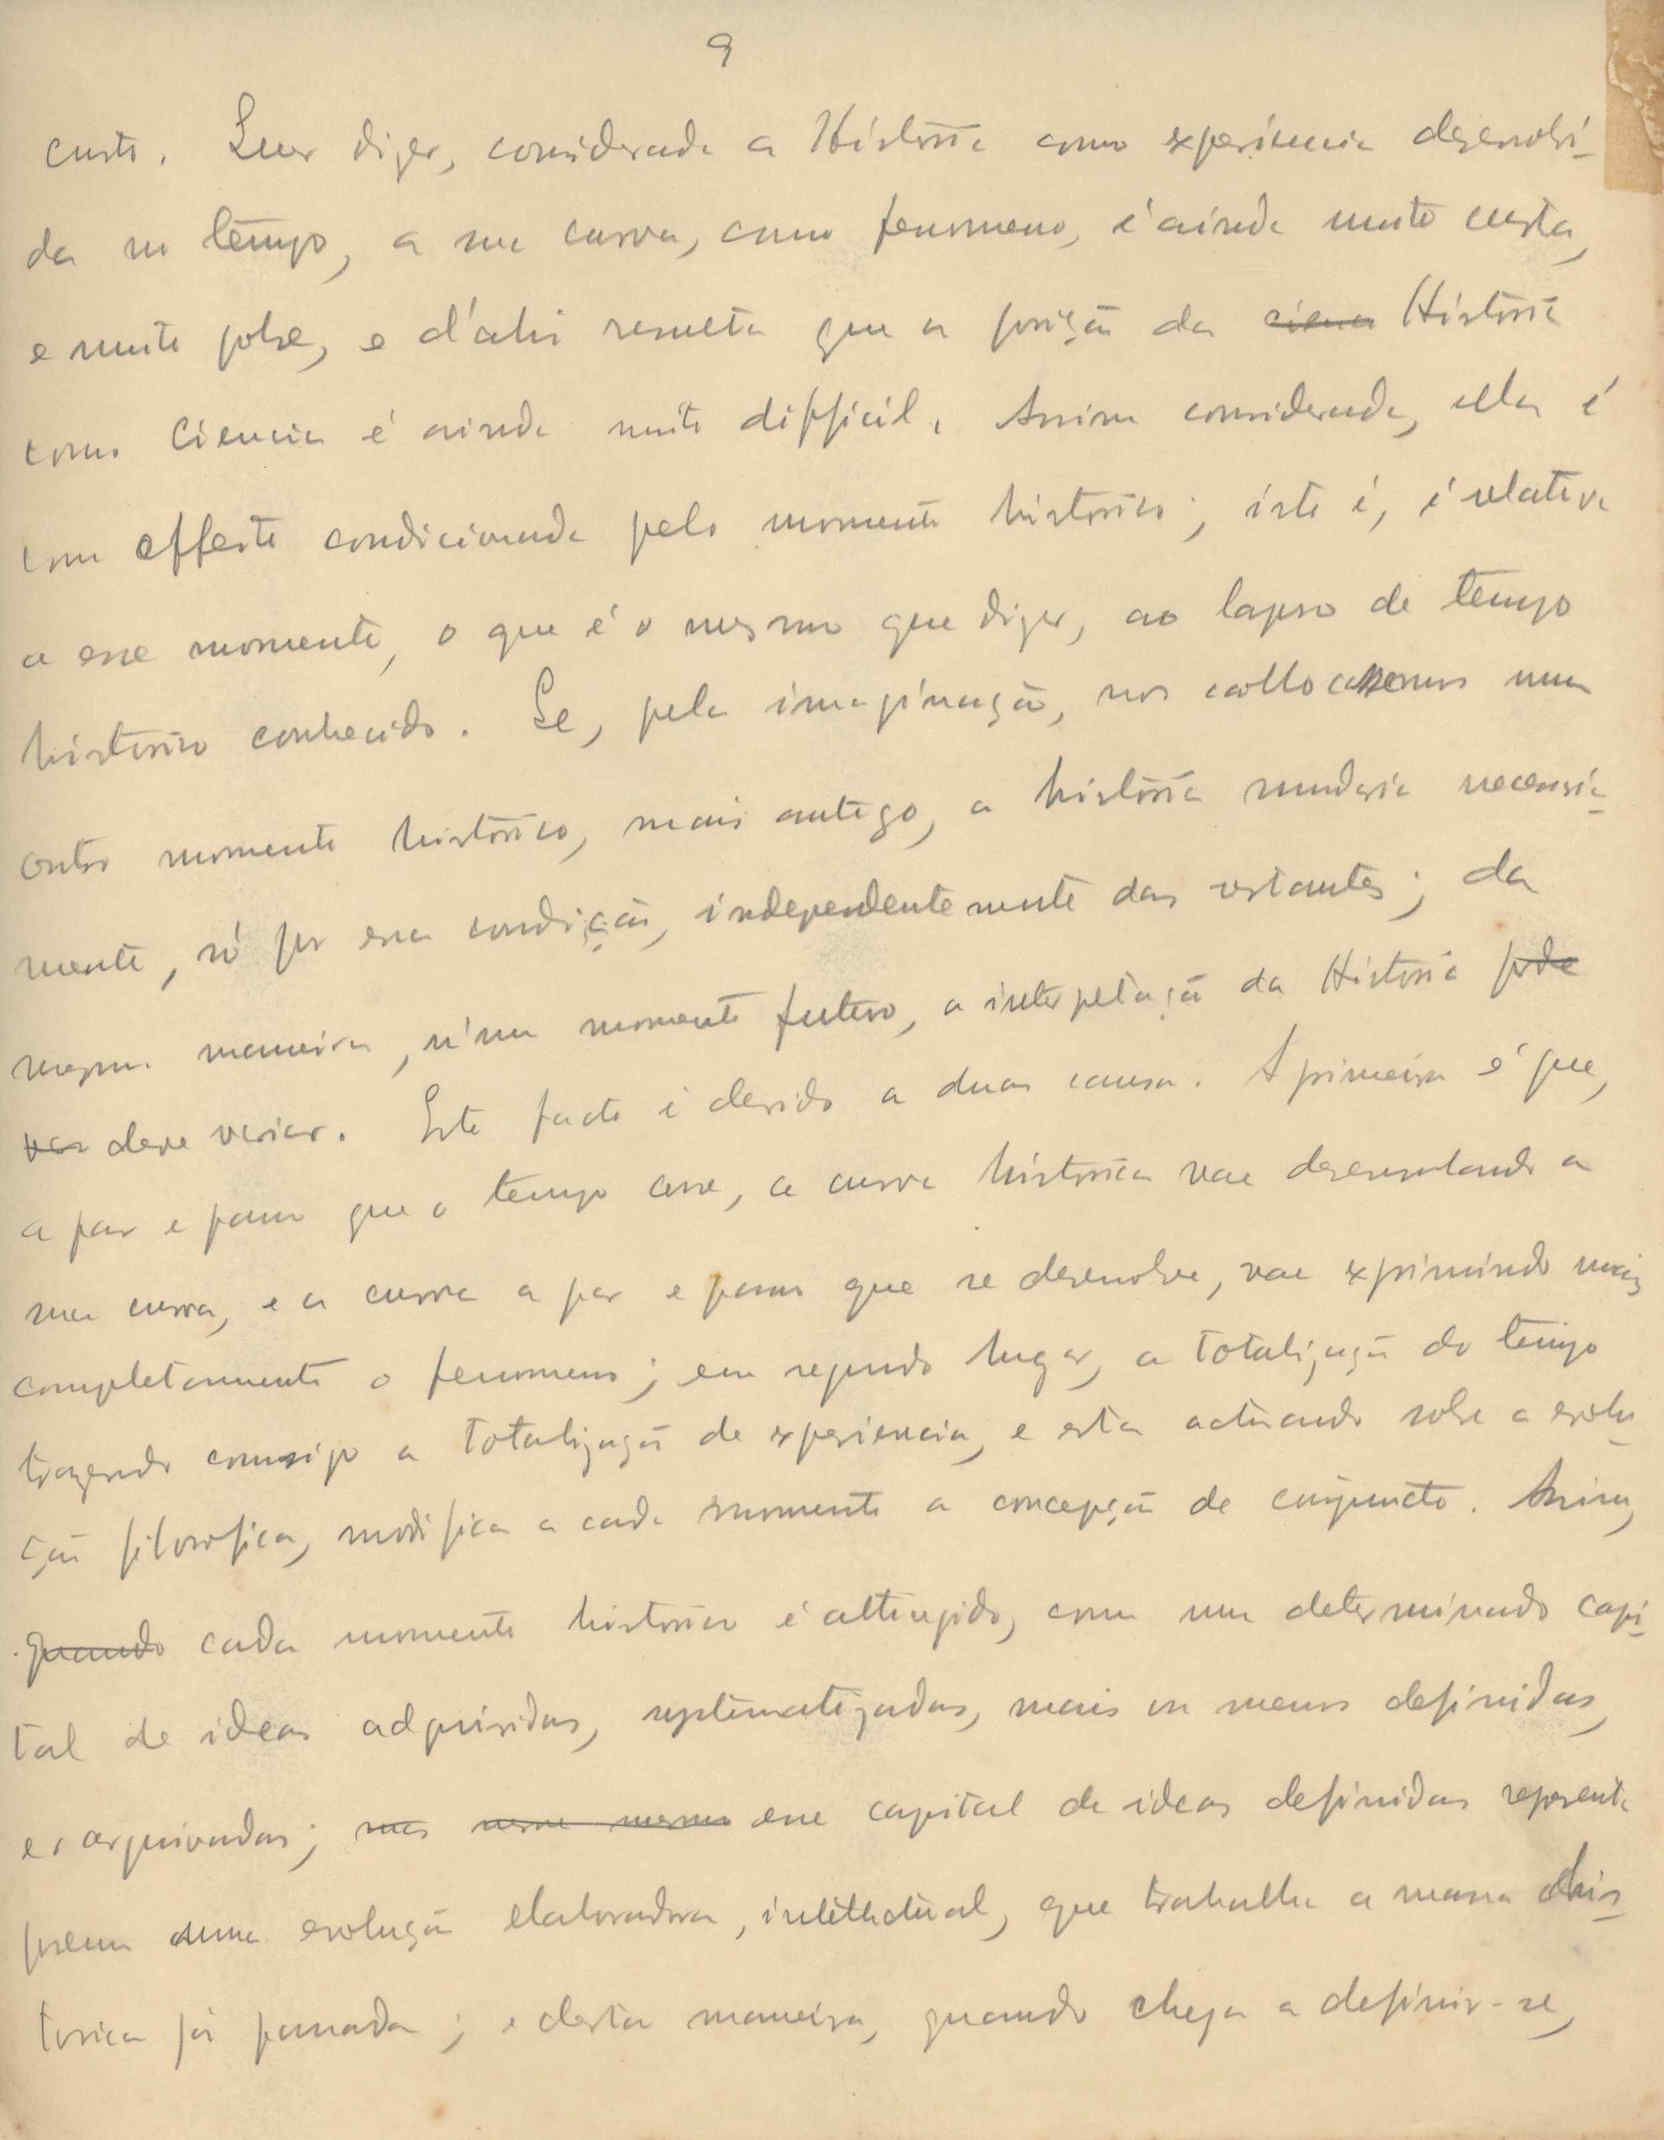 9
curto. Quer dizer, considerada a Historia como experiencia desenvolvi-
da no tempo, a sua curva, como fenomeno, é ainda muito curta,
e muito pobre, e d'ahi resulta que a posição da ciencia Historia
como Ciencia é ainda muito difficil. Assim considerada, ella é
com effeito condicionada pelo momento historico; isto é, é relativa
a esse momento, o que é o mesmo que dizer, ao lapso de tempo
historico conhecido. Se, pela imaginação, nos collocassemos num
outro momento historico, mais antigo, a historia mudaria necessaria-
mente, só por essa condição, independentemente das restantes; da
mesma maneira, n'um momento futuro, a interpetação da Historia pode
vae deve variar. Este facto é devido a duas causas. A primeira é que,
a par e passo que o tempo corre, a curva historica vae desenrolando a
sua curva, e a curva a par e passo que se desenvolve, vae exprimindo mais
completamente o fenomeno; em segundo lugar, a totalização do tempo
trazendo comsigo a totalização de experiencia, e esta actuando sobre a evolu-
ção filosofica, modifica a cada momento a concepção de conjuncto. Assim,
quando cada momento historico é attingido, com um determinado capi-
tal de ideas adquiridas, systematizadas, mais ou menos definidas,
e arquivadas; mas esse mesmo esse capital de ideas definidas representa
porem uma evolução elaboradora, intellectual, que trabalha a massa his-
torica já passada; e desta maneira, quando chega a definir-se,